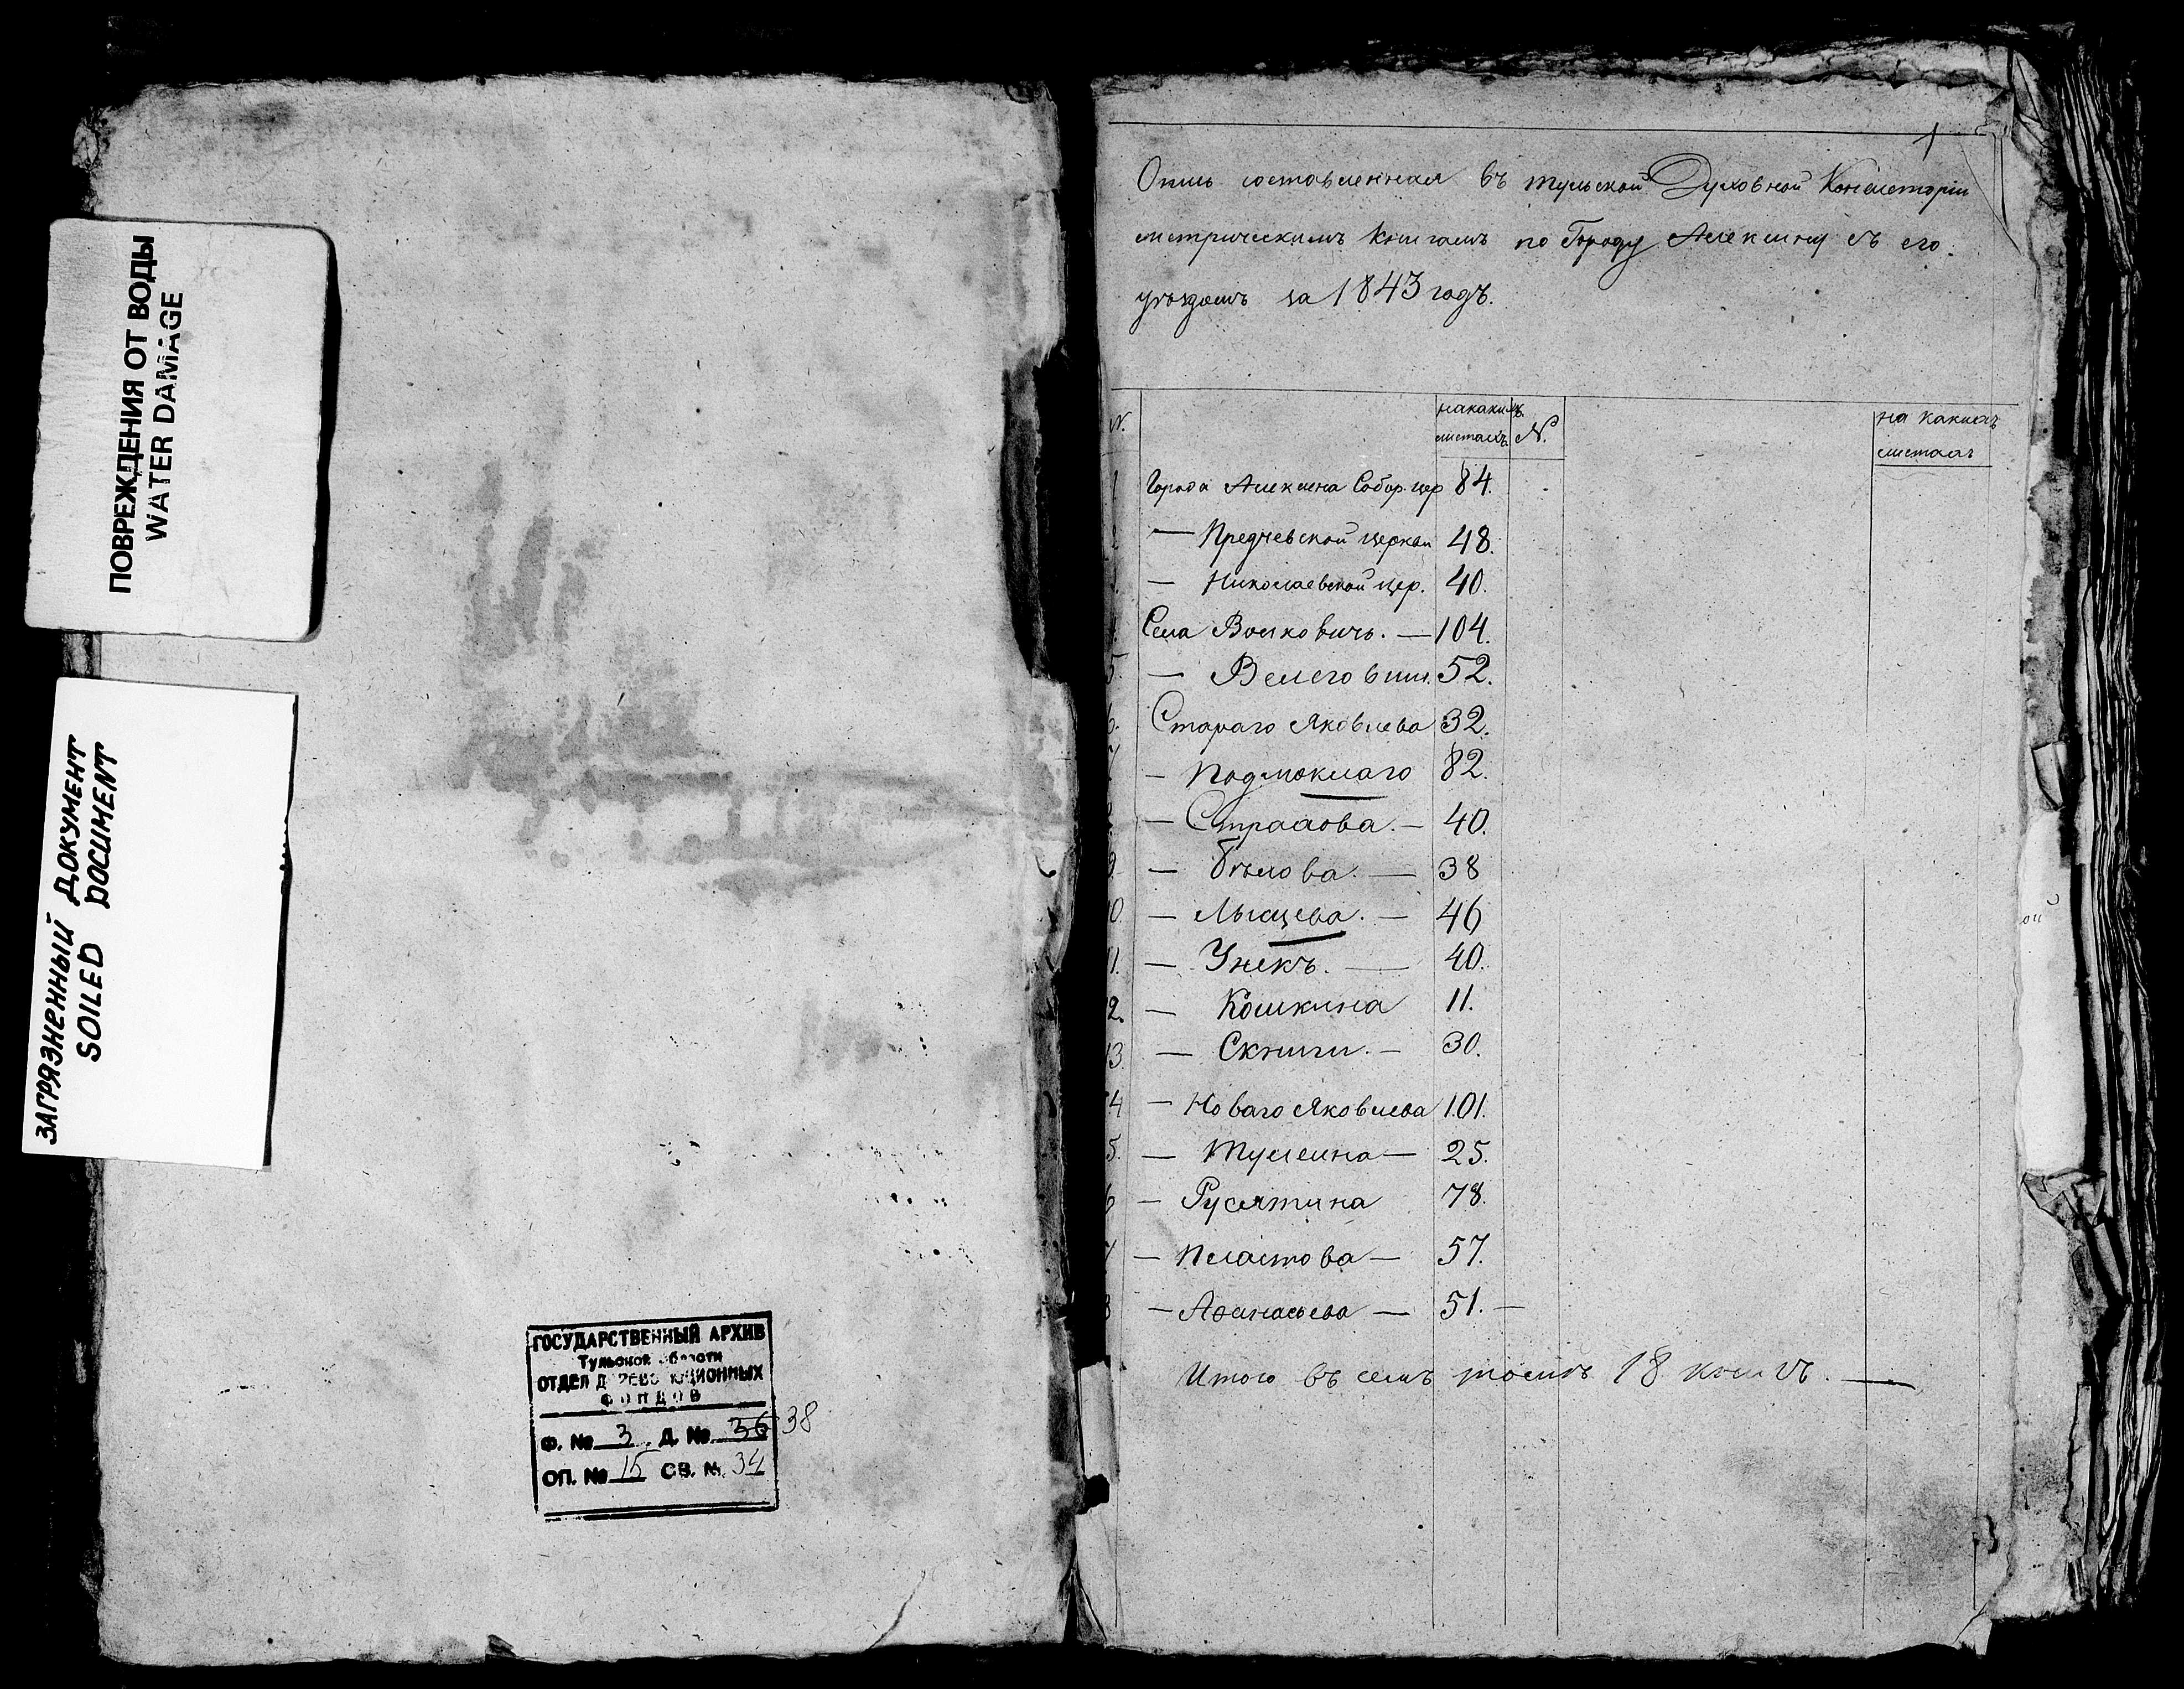 ПОВРЕЖДЕНИЯ ОТ ВОДЫ
WATER DAMAGE
ЗАГРЯЗНЕННЫЙ ДОКУМЕНТ
SOILED DOCUMENT
ГОСУДАРСТВЕННЫЙ АРХИВ
Тульской области
ОТДЕЛ ДОРЕВОЛЮЦИОННЫХ
ФОНДОВ
Ф. № 3 Д. № 36 38
ОП. № 15 СВ. № 34
1
Опись составленная въ тульской Духовной Консисторіи
метрическимъ книгамъ по Городу Алексину съ его
уѣздомъ за 1843 годъ.
№. на какихъ листахъ. №. на какихъ листахъ
1 Города Алексина Собор. цер 84.
2 — Предчевской церкви 48.
3. — Николаевской цер. 40.
4. Села Волковичь. — 104.
5. — Велеговни. 52.
6. Стараго Яковлева 32.
7 — Подмоклаго 82.
8 — Страхова. — 40.
9. — Бѣлова. — 38
10. — Лыщева. — 46
11. — Унекъ. — 40.
12. — Кошкина 11.
13 — Скниги. — 30.
14 — Новаго Яковлева 101.
15. — Тулеина — 25.
16 — Русятина 78.
17 — Пластова — 57.
18 — Афанасьева — 51. —
Итого въ семъ томѣ 18 книгъ. —